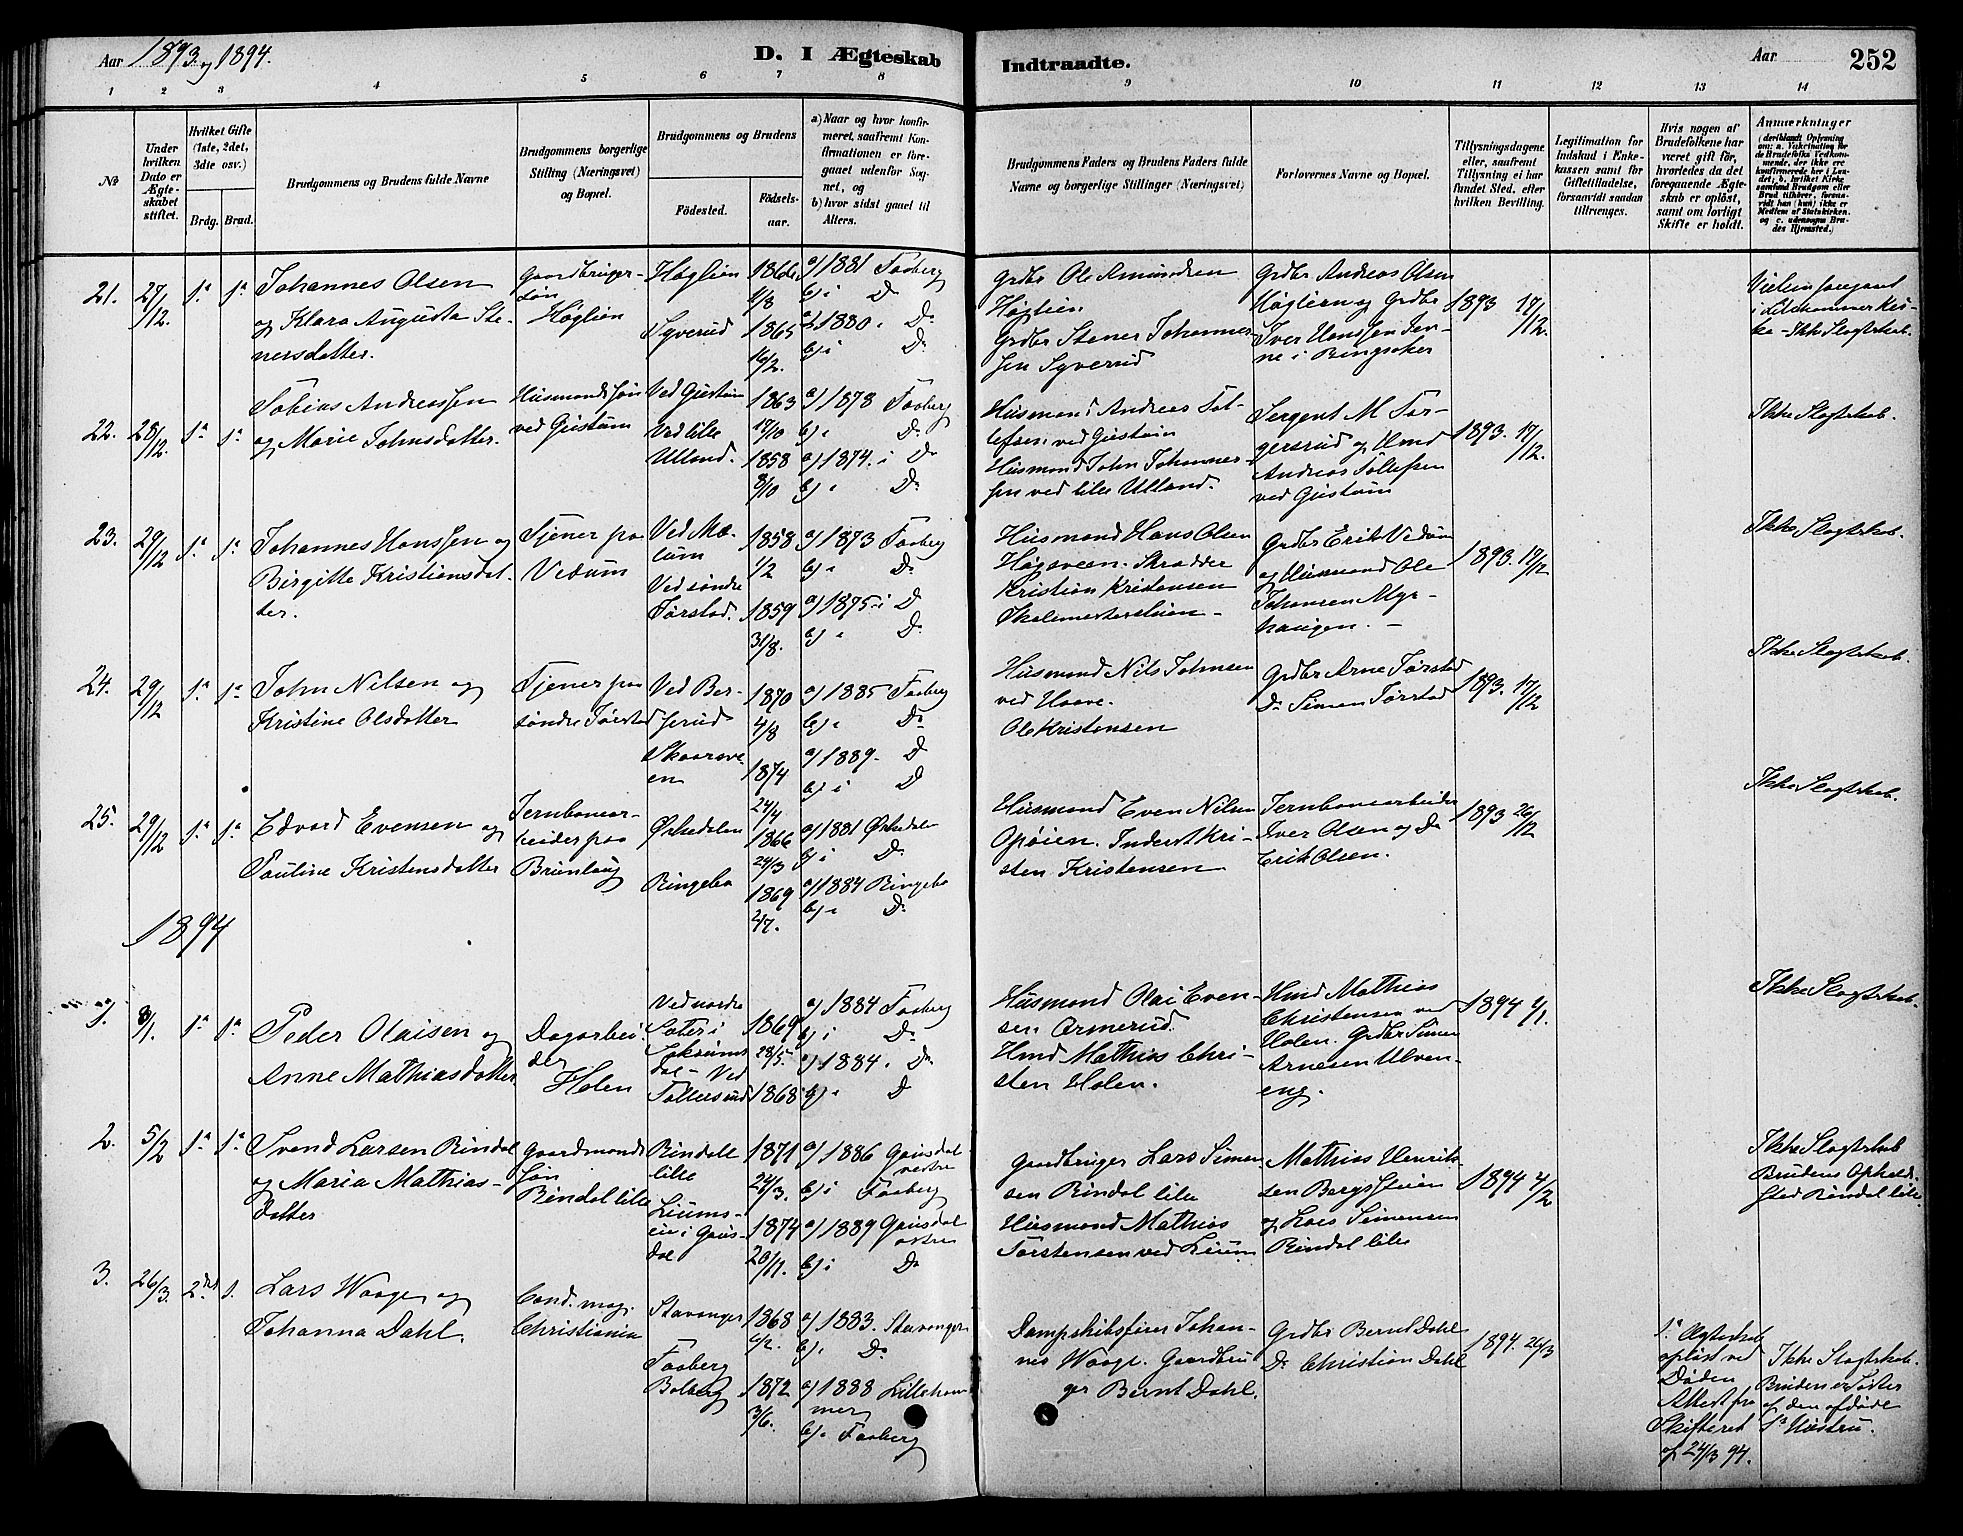 Aar 1893 og 1894.
D. I Ægteskab Indtraadte.
Aar 252
1 2 3 4 5 6 7 8 9 10 11 12 13 14
No
Under hvilken Dato er Ægteskabet stiftet.
Hvilket Gifte (1ste, 2det, 3die osv.)
Brdg. Brud.
Brudgommens og Brudens fulde Navne
Brudgommens borgerlige Stilling (Næringsvei) og Bopæl.
Brudgommens og Brudens
Fødested.
Fødselsaar.
a) Naar og hvor konfirmeret, saafremt Konfirmationen er foregaaet udenfor Sognet, og
b) hvor sidst gaaet til Alters.
Brudgommens Faders og Brudens Faders fulde Navne og borgerlige Stillinger (Næringsvei)
Forlovernes Navne og Bopæl.
Tillysningsdagene eller, saafremt Tillysning ei har fundet Sted, efter hvilken Bevilling.
Legitimation for Indskud i Enkekassen samt for Giftetilladelse, forsaavidt saadan tiltrænges.
Hvis nogen af Brudefolkene har været gift før, hvorledes da det foregaaende Ægteskab er opløst, samt om lovligt Skifte er holdt.
Anmærkninger
21. 27/12. 1ª 1ª
Johannes Olsen
og Klara Augusta Ste-
nersdatter.
Gaardbruger-
søn
Høglien
Høglien
Syverud
1866
4/8
1865
16/2.
a) 1881 Faaberg
b) i Do
a) 1880. Do
b) i Do
Grdbr Ole Amundsen
Høglien
Grdbr Stener Johannes-
sen Syverud
Grdbr Andreas Olsen
Høglien og Grdbr
Iver Hanssen Jen-
ne i Ringsaker
1893 17/12.
Vielsen foregaaet
i Lillehammer Kir-
ke - Ikke Slagtskab.
22. 28/12. 1ª 1ª
Tobias Andreassen
og Marie Johnsdatter.
Husmands søn
ved Gustum
Ved Gustum
Ved lille
Ulland.
1863
17/10
1858
8/10
a) 1878 Faaberg
b) " Do
a) 1874. i Do
b) " Do
Husmand Andreas Tol-
lefsen ved Gustum
Husmand John Johannes-
sen ved lille Ulland.
Sergent M For-
gersrud og Hmd
Andreas Tollefsen
ved Gustum
1893. 17/12.
Ikke Slagtskab.
23. 29/12 1ª 1ª
Johannes Hanssen og
Birgitte Kristiansdat-
ter.
Tjener paa
Vedum
Ved Mæ-
lum
Ved søndre
Førstad.
1858
1/2
1859
31/8.
a) 1873 Faaberg
b) " Do
a) 1875. i D
b) " Do
Husmand Hans Olsen
Høgsveen. Skrædder
Kristian Kristensen
Skolemesterstuen -
Grdbr Erik Vedum
og Husmand Ole
Johansen Myr-
haugen. -
1893. 17/12
Ikke Slagtskab.
24. 29/12 1ª 1ª
John Nilsen og
Kristine Olsdatter
Tjener paa
søndre Førstad
Ved Ber-
serud
Skaarsve-
en
1870
4/8
1874
24/4
a) 1885 Faaberg
b) " Do
a) 1889. D
b) i D
Husmand Nils Johnsen
ved Haave.
Ole Kristensen
Grdbr Arne Førstad
Do Simen Førstad
1893. 17/12
Ikke Slagtskab.
25. 29/12 1ª 1ª
Edvard Evensen og
Pauline Kristensdatter
Jernbanear-
beider paa
Brunlaug
Øskedalen
Ringebo
1866
24/3
1869
2/7.
a) 1881 Øskedalen
b) i Do
a) 1884 Ringebo
b) " Do
Husmand Even Nilsen
Opøien. Inderst Kri-
sten Kristensen
Jernbanearbeider
Iver Olsen og Do
Erik Olsen.
1893 26/12
Ikke Slagtskab.
1894
1. 8/1. 1ª 1ª
Peder Olaisen og
Anne Mathiasdatter
Dagarbei-
der
Holen
Ved nordre
Sater i
Joksums-
dal - Ved
Tollersrud
1869
28/5.
1868
a) 1884 Faaberg
b) i Do
a) 1884. Do
b) " D
Husmand Olai Even-
sen Armerud.
Hmd Mathias Chri-
sten Holen.
Hmd Mathias
Christensen ved
Holen. Grdbr Simen
Arnesen Ulven-
eng.
1894 7/1.
Ikke Slagtskab.
2. 5/2 1ª 1ª
Svend Larsen Rindal
og Maria Mathias-
datter
Gaardmands
søn
Rindal lille
Rindal
lille
Liums-
eie i Gaus-
dal
1871
24/3.
1874
20/11.
a) 1886 Gausdal
vestre
b) i Faaberg
a) 1889 Gausdal
østre
b) i Do
Gaardbruger Lars Simen-
sen Rindal lille
Husmand Mathias
Torstensen ved Lium
Mathias Henrik-
sen Bergssteien
og Lars Simensen
Rindal lille
1894 4/2
Ikke Slagtskab
Brudens Opholds-
sted Rindal lille
3. 26/3. 2det 1.
Lars Waage og
Johanna Dahl.
Cand. mag.
Christiania
Stavanger
Faaberg
Balberg
1868
4/2.
1872
3/6.
a) 1883. Stavanger
b) " Do
a) 1888 Lilleham-
mer
b) " Faaberg
Dampskibsfører Johan-
nes Waage. Gaardbru-
ger Bernt Dahl.
Grdbr Bernt Dahl
Do Christian Dahl
1894. 26/3
1ª Ægteskab
opløst ved
Døden
Attest fra
Skifteret
af 24/3 94.
Ikke Slagtskab.
Bruden er Søster
af den afdøde
1ª Hustru.